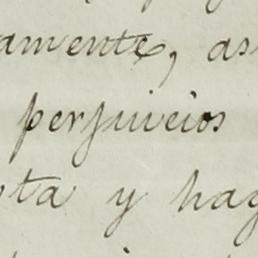 amente, as
perjuicios
ta y hag